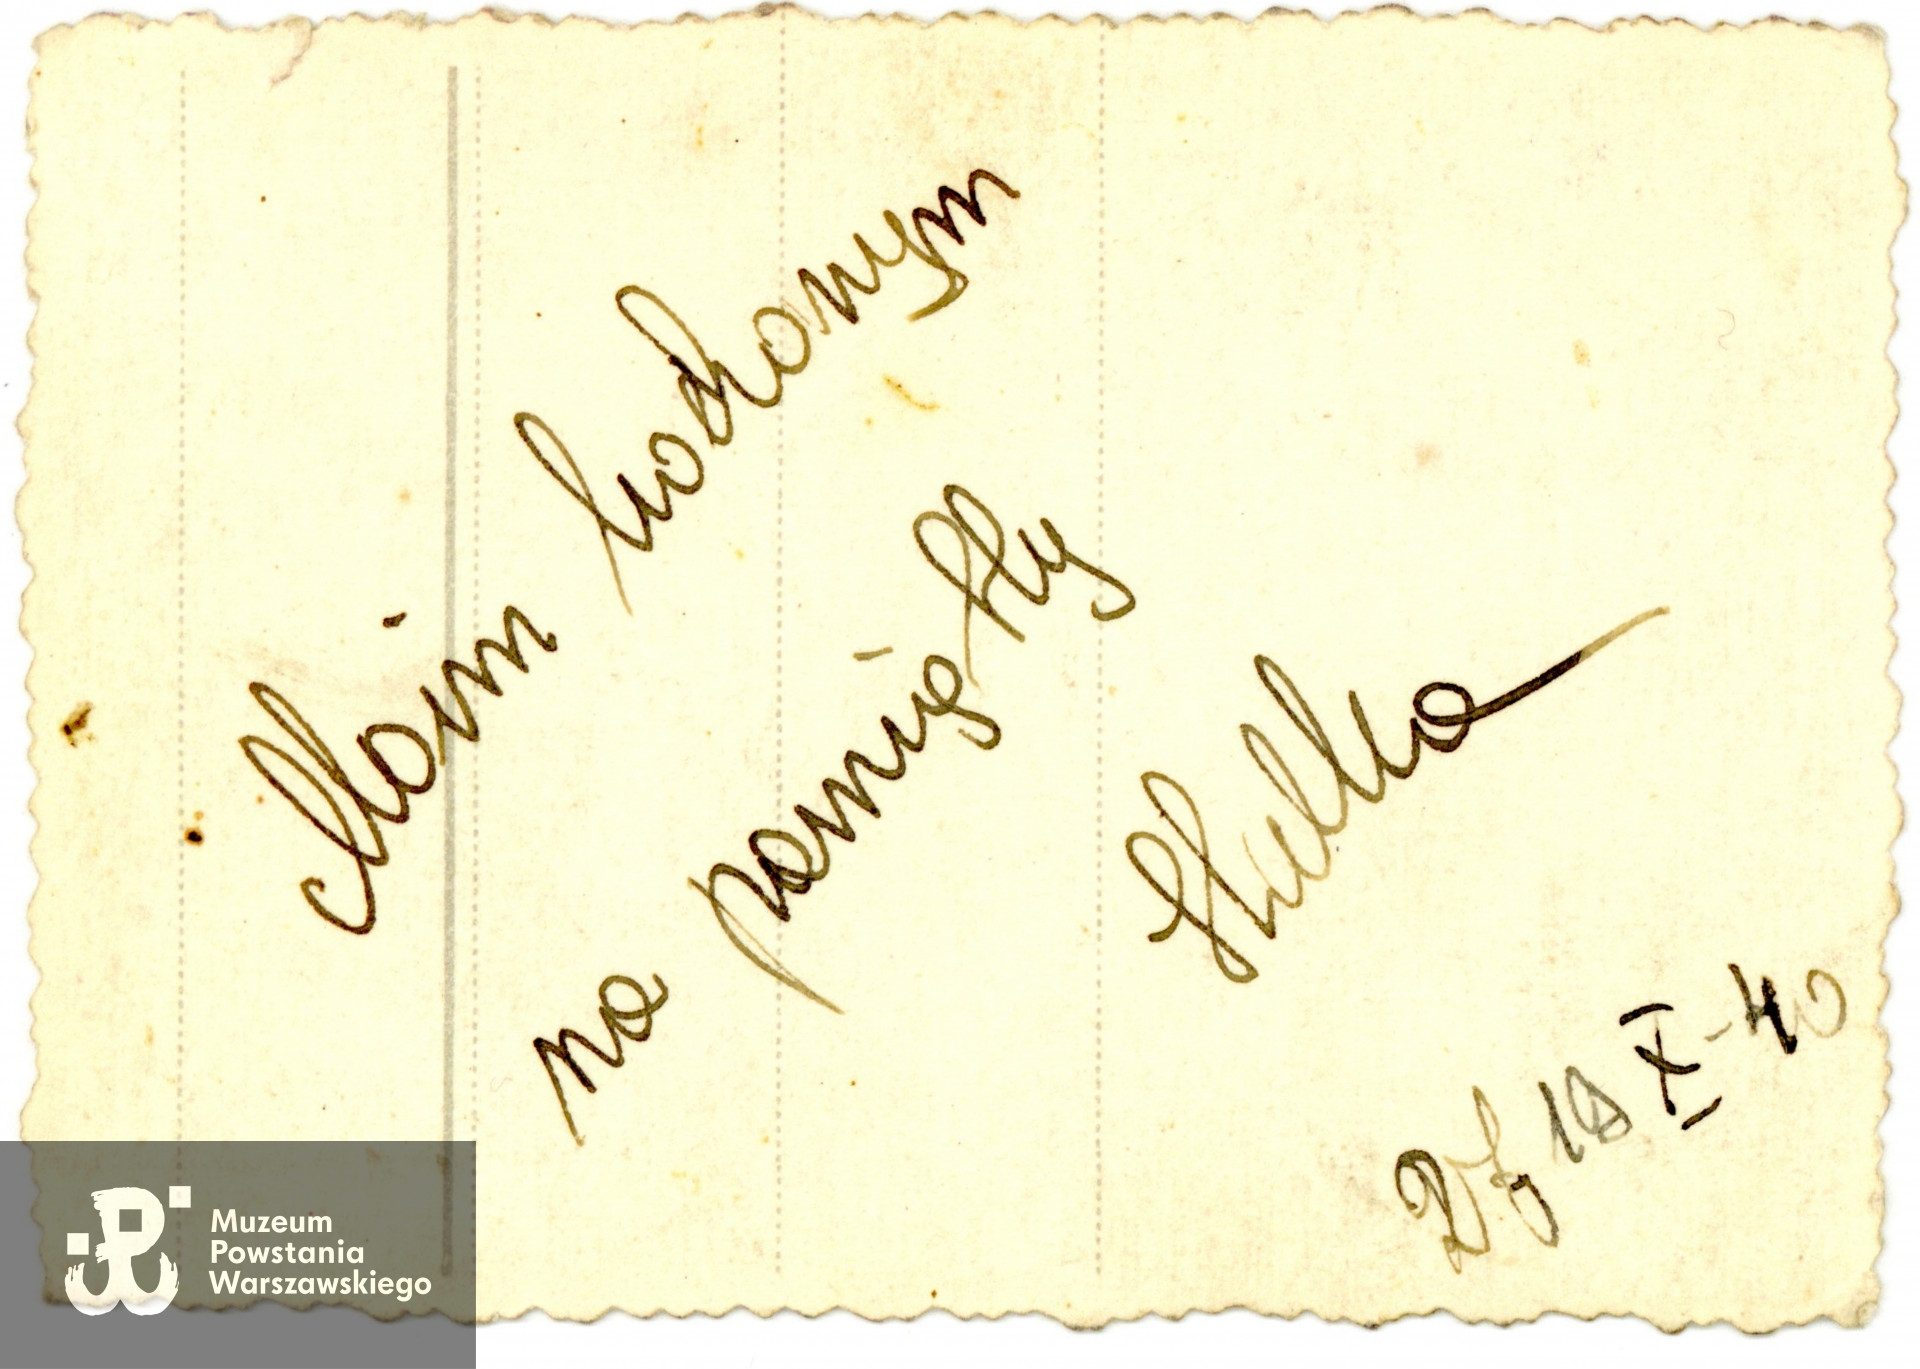 Moim kochanym
na pamiątkę
19 X-40
Muzeum
Powstania
Warszawskiego